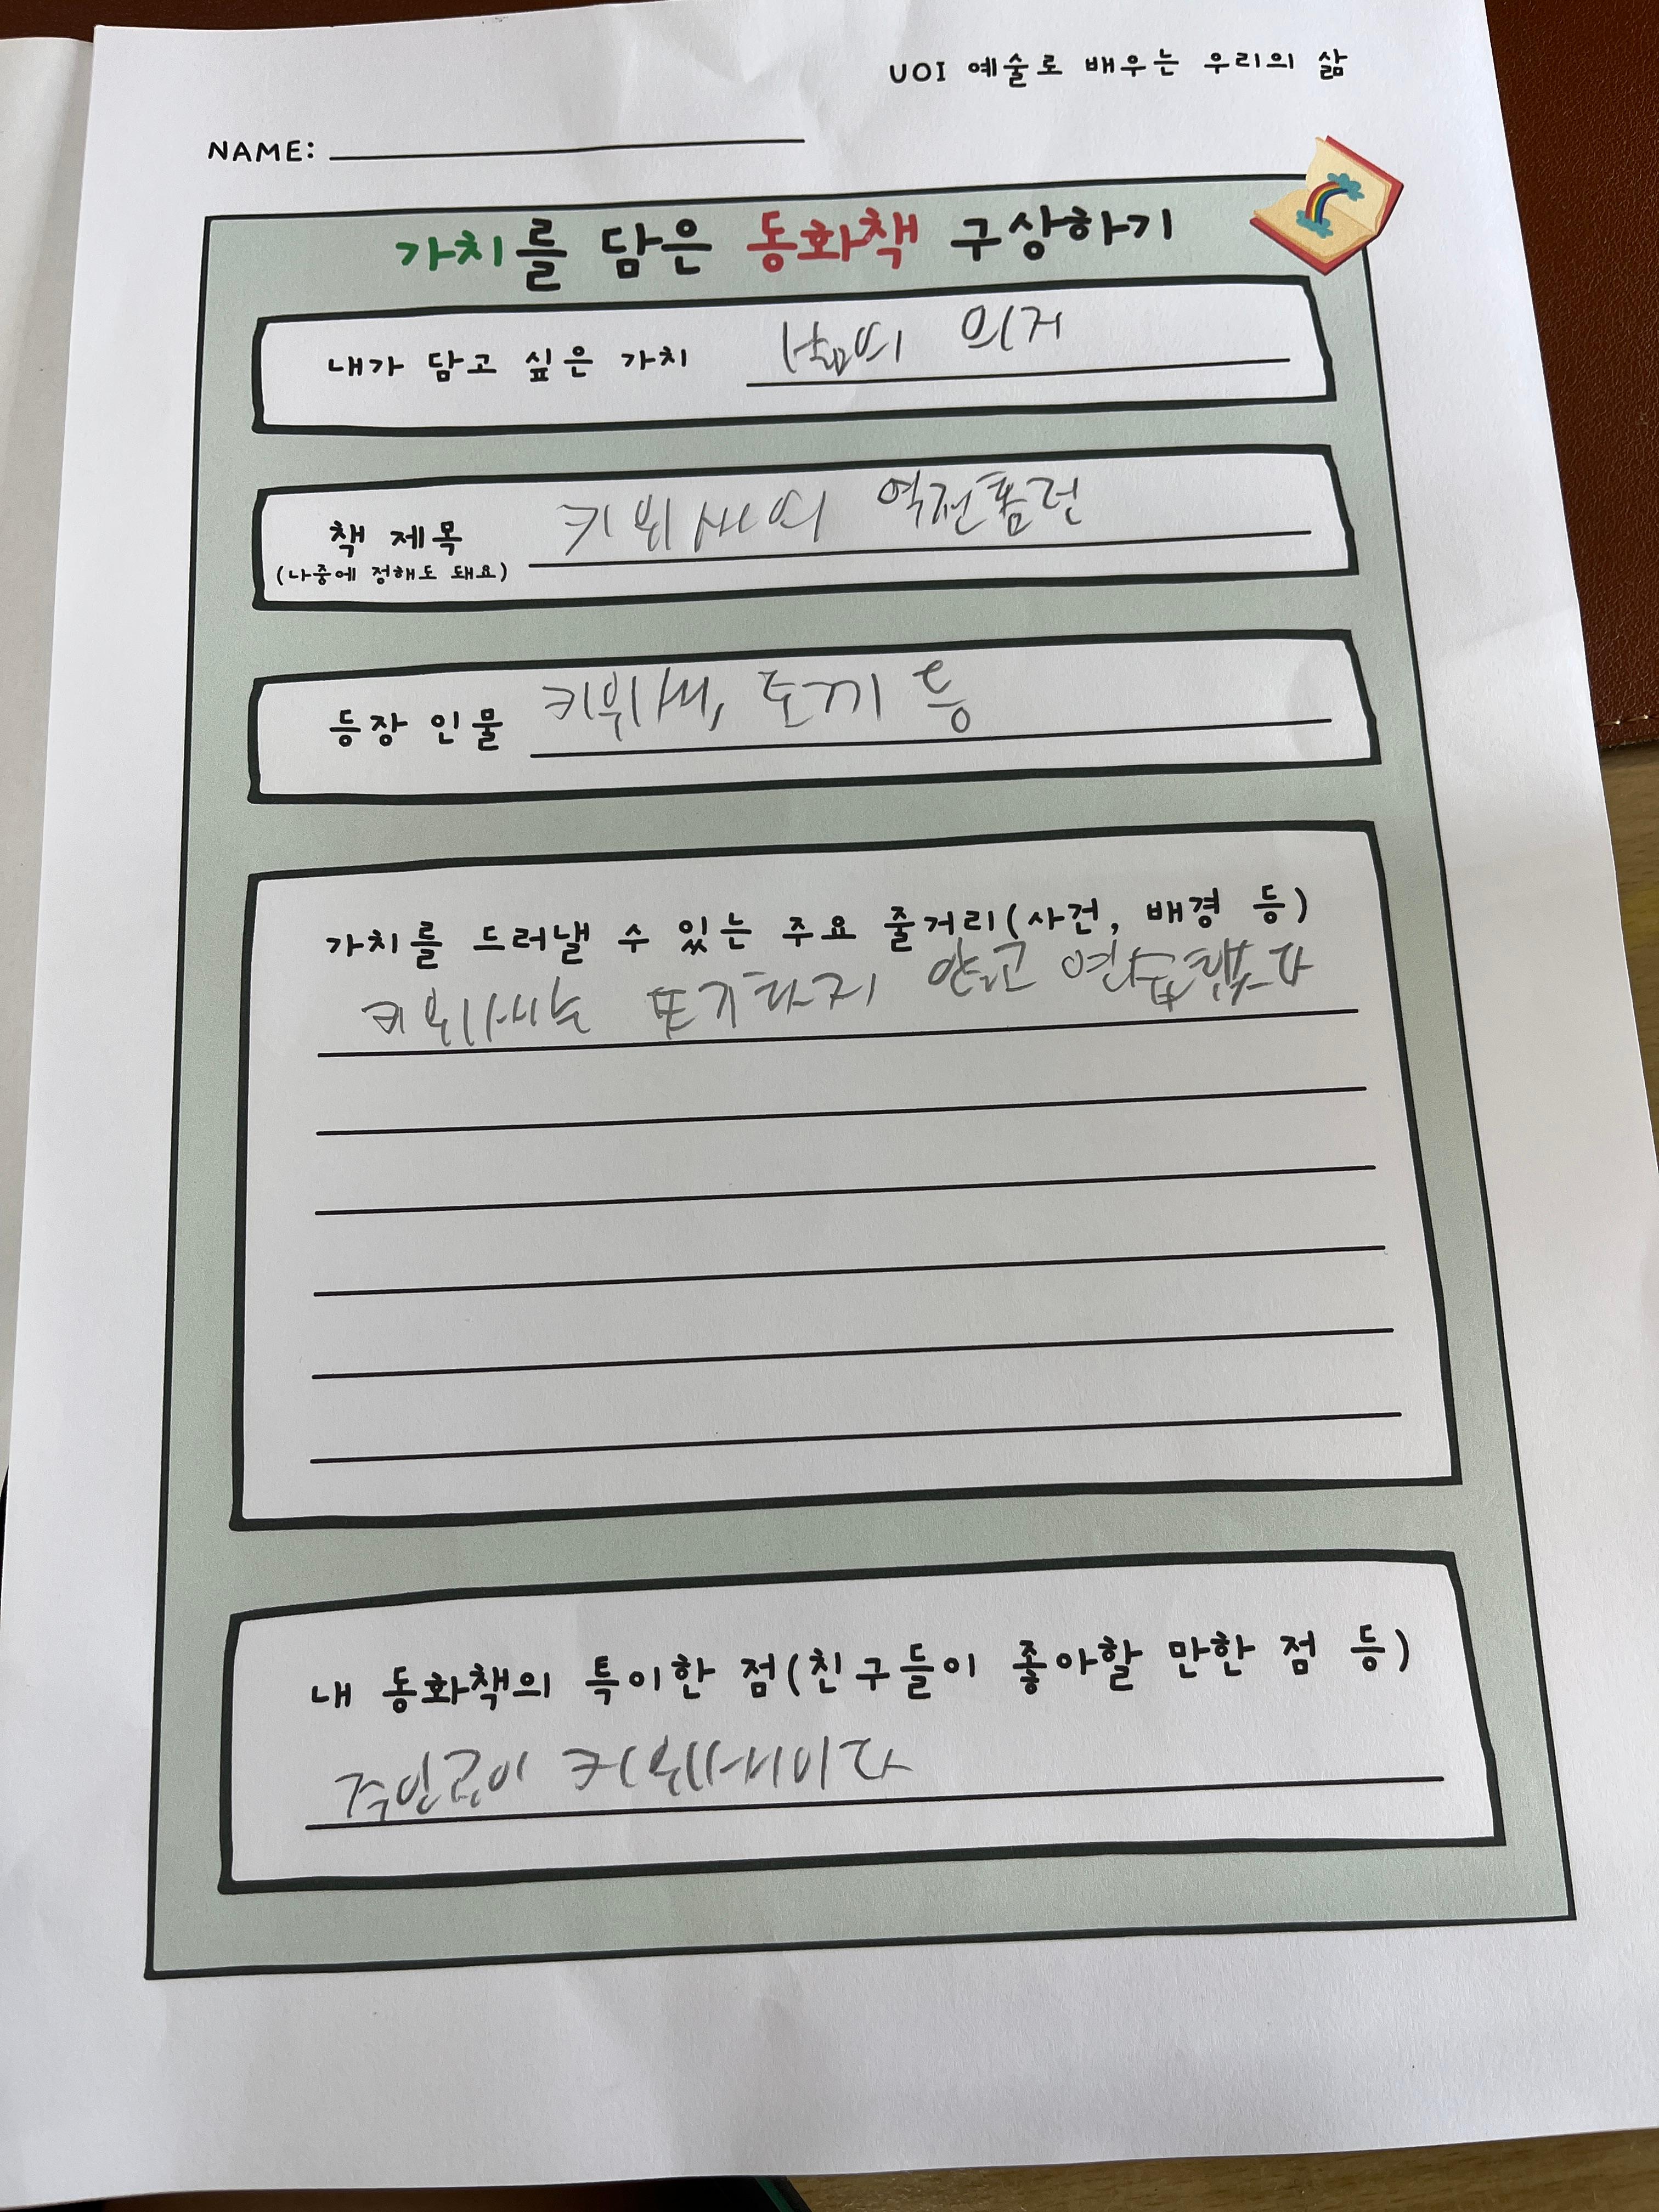 UOI 예술로 배우는 우리의 삶
NAME:
가치를 담은 동화책 구상하기
내가 담고 싶은 가치 삶의 의지
책 제목 키위새의 역전홈런
(나중에 정해도 돼요)
등장 인물 키위새, 토끼 등
가치를 드러낼 수 있는 주요 줄거리(사건, 배경 등)
키위새는 포기하지 않고 연습했다
내 동화책의 특이한 점(친구들이 좋아할 만한 점 등)
주인공이 키위새이다